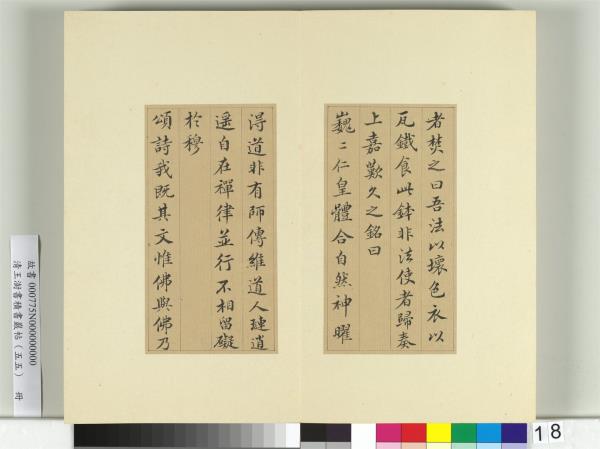 者焚之曰吾法以壞色衣以
瓦鐵食此鉢非法使者歸奏
上嘉歎久之銘曰
巍〻仁皇體合自然神曜
得道非有師傳維道人璉逍
遥自在禪律並行不相留礙
於穆
頌詩我既其文惟佛與佛乃
故書 000775N000000000
清王澍書積書巖帖（五五） 冊
18